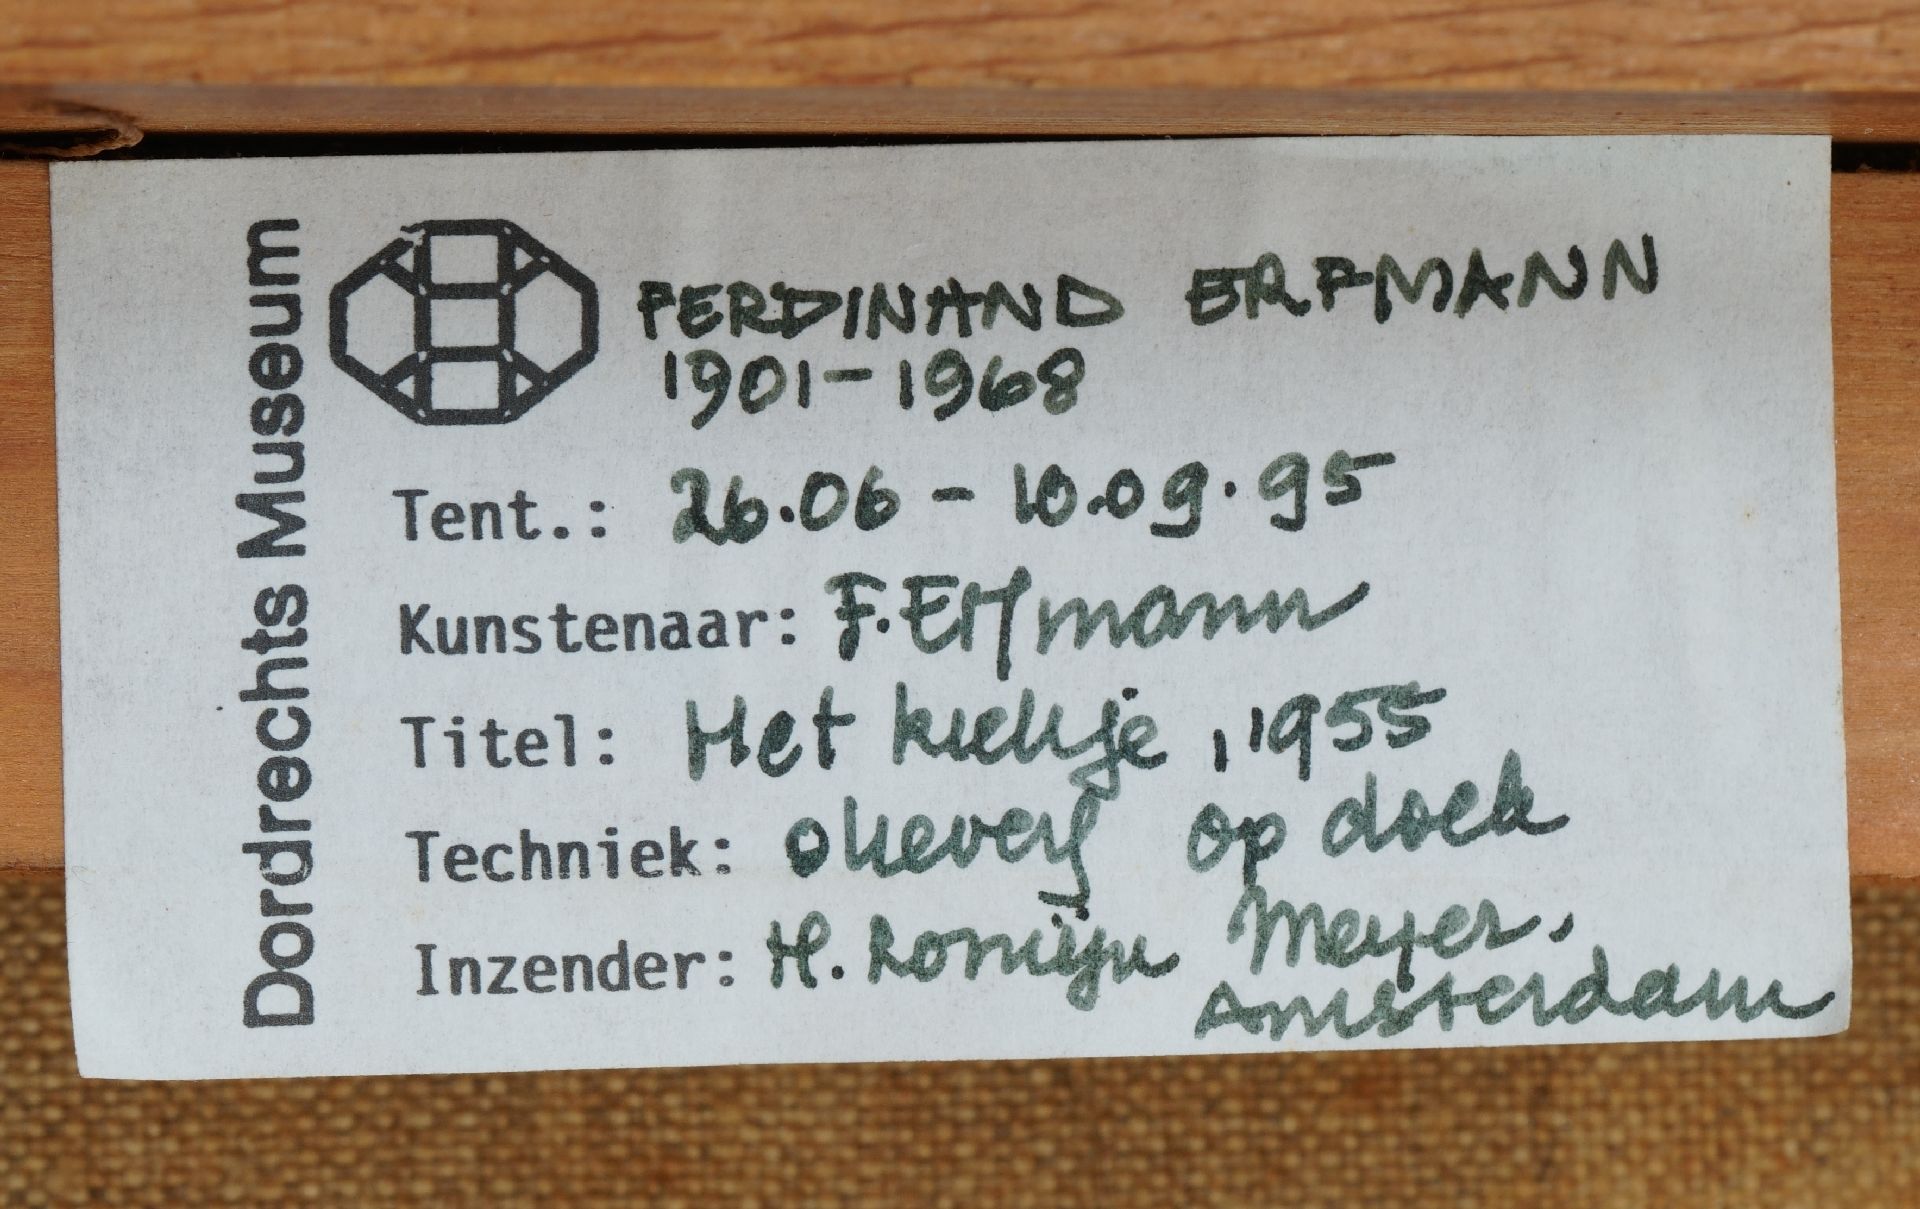 Dordrechts Museum
FERDINAND ERFMANN
1901-1968
Tent.: 26.06 - 10.09.95
Kunstenaar: F. Erfmann
Titel: Het kiekje, 1955
Techniek: olieverf op doek
Inzender: H. Romijn Meyer.
Amsterdam